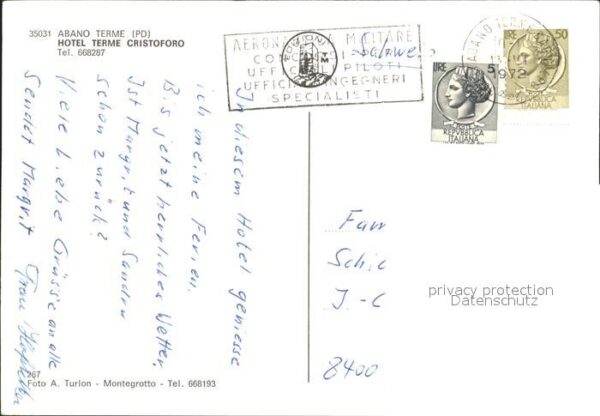 35031 ABANO TERME (PD)
HOTEL TERME CRISTOFORO
Tel. 668287
AERONAUTICA MILITARE
UFFICIALI PILOTI
UFFICIALI INGEGNERI
SPECIALISTI
EDIZIONI
TM
Schweiz
ABANO TERME
1972
LIRE 5
REPVBBLICA
ITALIANA
LIRE 50
REPVBBLICA
ITALIANA
In diesem Hotel geniesse
ich meine Ferien.
Bis jetzt herrliches Wetter.
Ist Margrit und Sandra
schon zurück?
Viele liebe Grüsse an alle
sendet Margrit
Frau
Fam
Schic
J.-C
8400
privacy protection
Datenschutz
267
Foto A. Turlon - Montegrotto - Tel. 668193